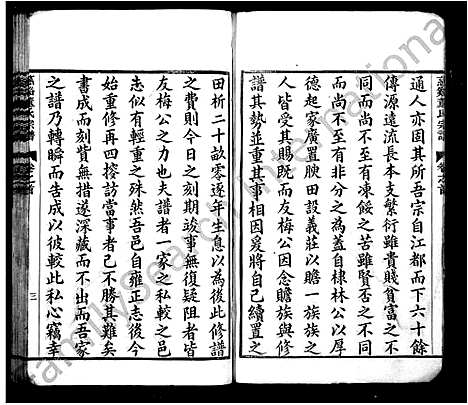 通人亦因其所吾宗自江都而下六十餘
傳源遠流長本支繁衍雖貴賤貧富之不
同而不至有凍餒之苦雖賢否之不同
然亦不至有非分之為蓋自棣林公以厚
德起家廣置腴田設義莊以贍一族之
人皆受其賜既而友梅公因念贍族與修
譜其勢並重其事相因爰將自己續置之
田析二十畝零逐年生息以為後此修譜
之費則今日之刻期竣事無復疑阻者皆
友梅公之力也夫譜者一家之私較之邑
志似有輕重之殊然吾邑自雍正志後今
始重修再四搜訪當事者已不勝其難矣
書成而刻貲無措遂深藏而不出而吾家
之譜乃轉瞬而告成以彼較此私心竊幸
慈谿董氏宗譜
卷之首
三
慈谿董氏宗譜
卷之首
FamilySearch International